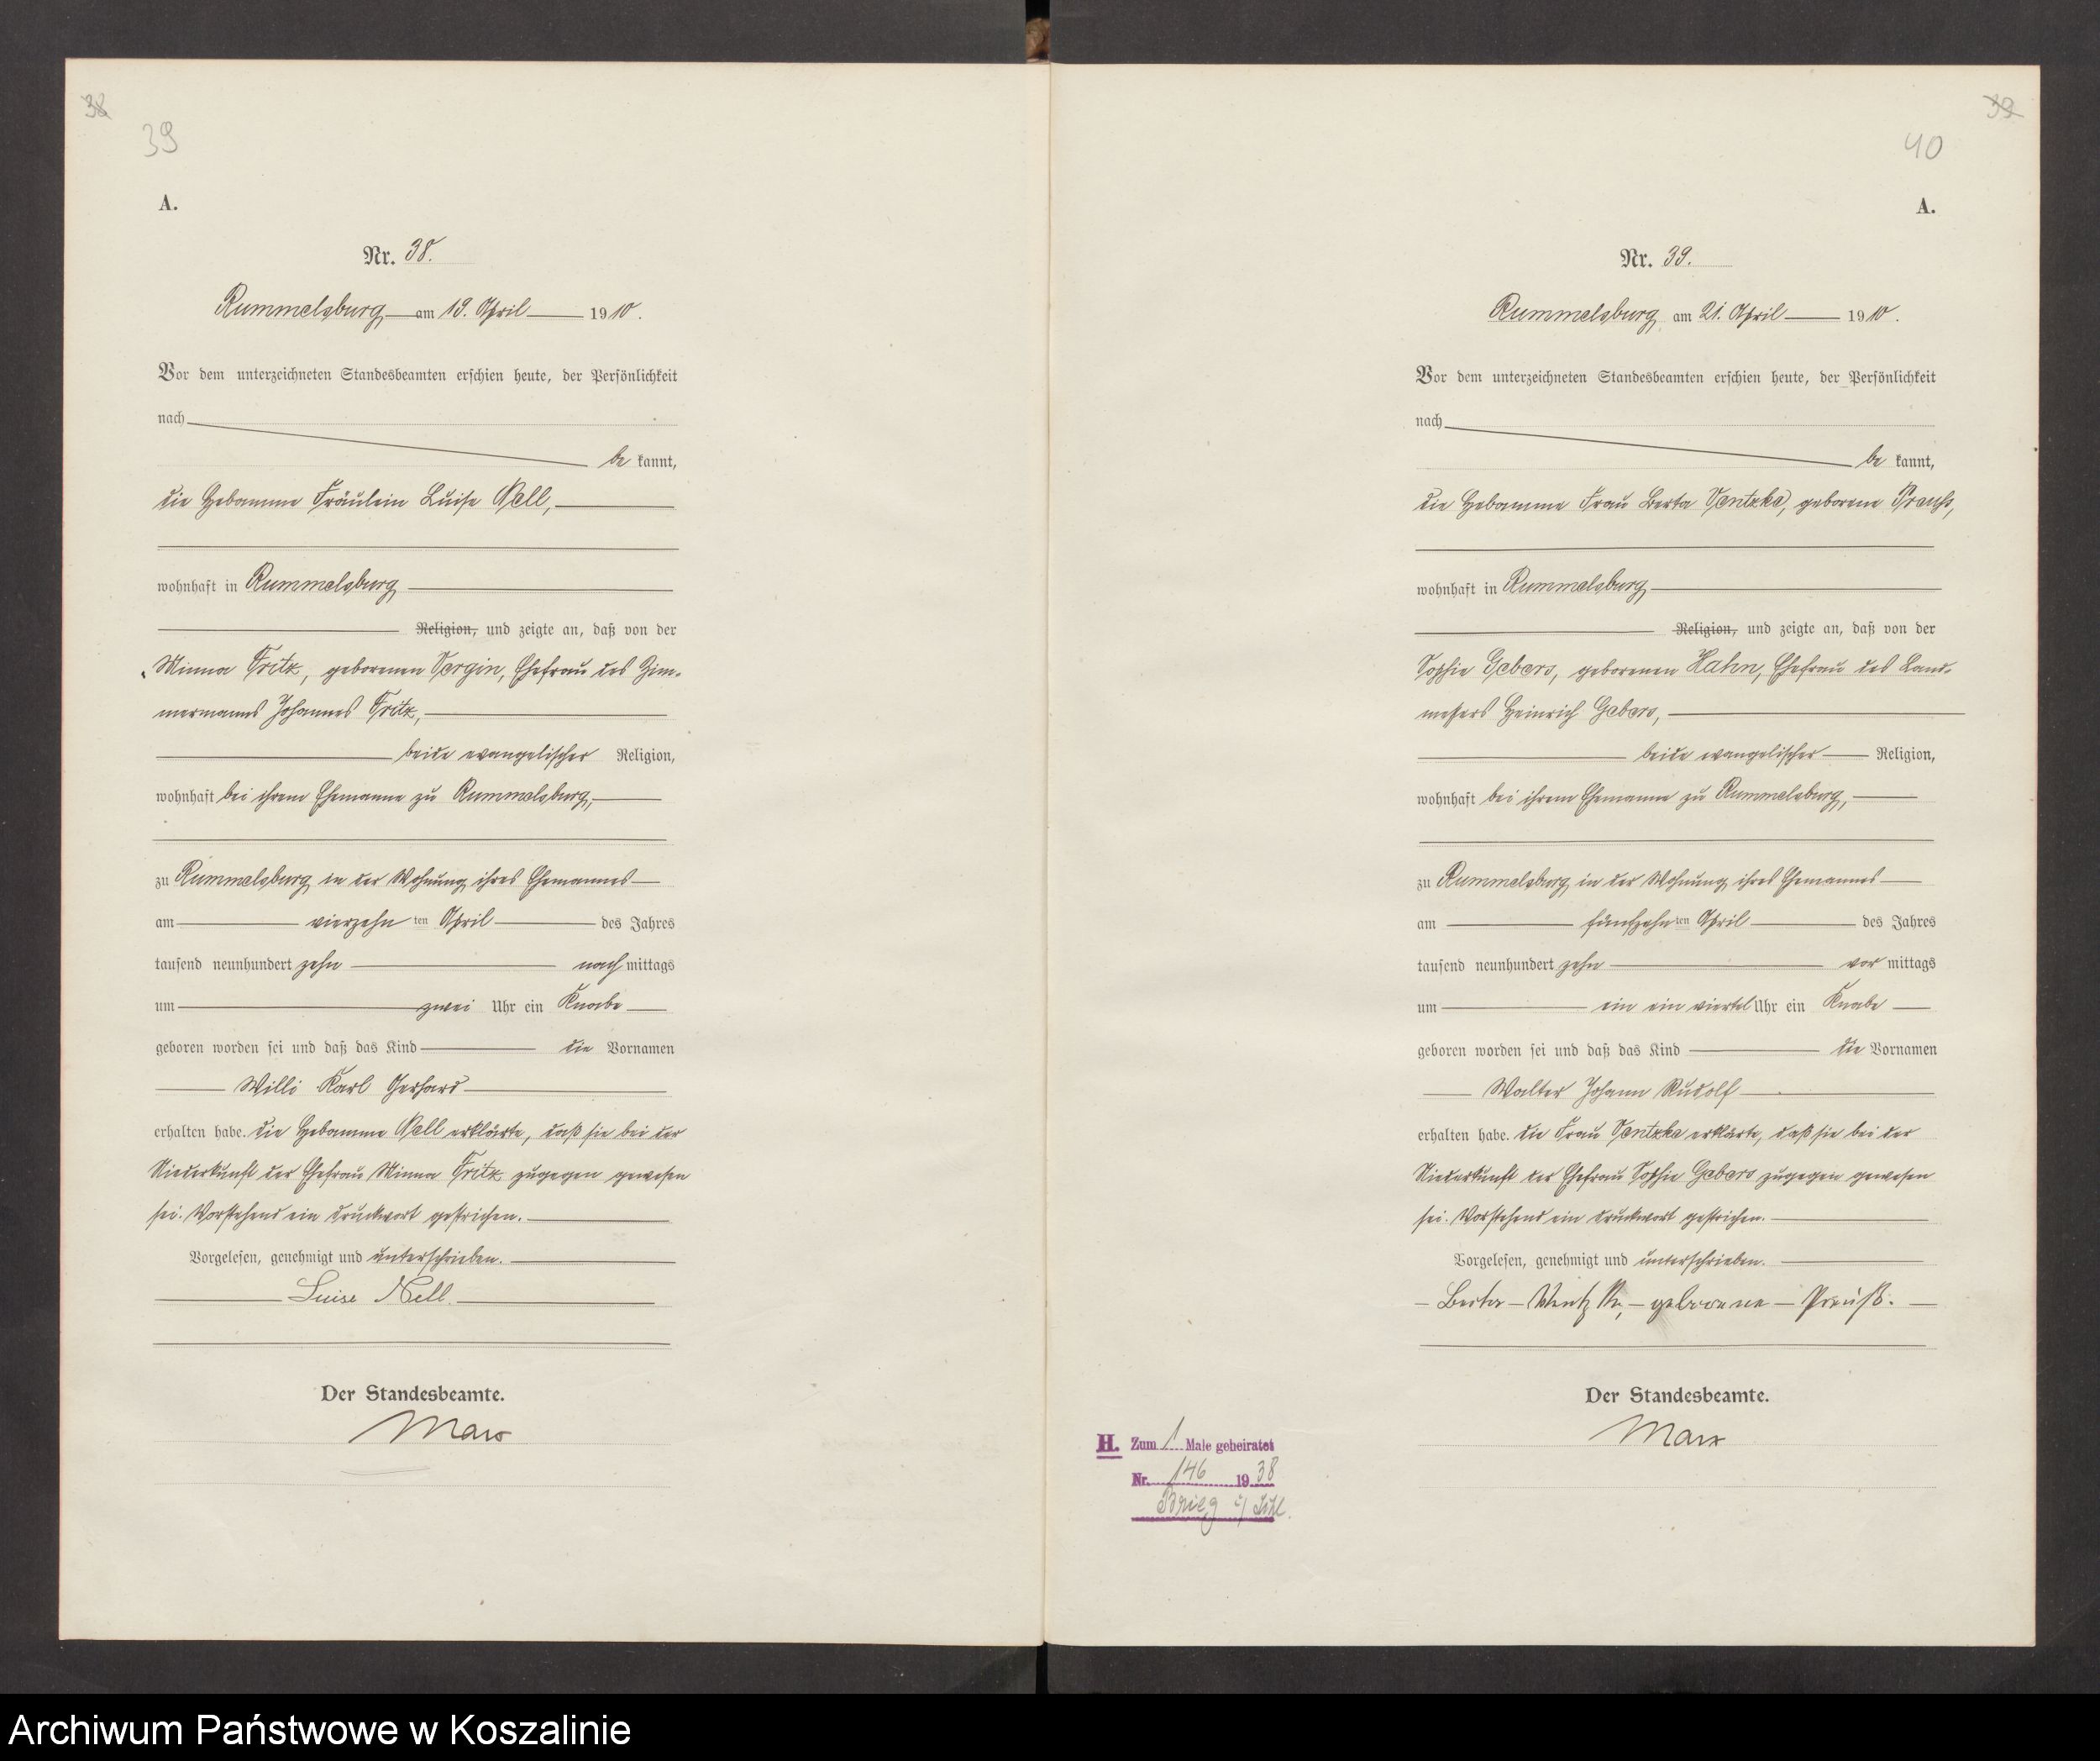 38
39
A.
Nr. 38.
Rummelsburg am 19. April 1910.
Vor dem unterzeichneten Standesbeamten erschien heute, der Persönlichkeit
nach
be kannt,
die Hebamme Fräulein Luise Nell,
wohnhaft in Rummelsburg
Religion, und zeigte an, daß von der
Minna Fritz, geborenen Vergin, Ehefrau des Zim-
mermanns Johannes Fritz,
beide evangelischer Religion,
wohnhaft bei ihrem Ehemanne zu Rummelsburg,
zu Rummelsburg in der Wohnung ihres Ehemannes
am vierzehn ten April des Jahres
tausend neunhundert zehn nach mittags
um zwei Uhr ein Knabe
geboren worden sei und daß das Kind die Vornamen
Willi Karl Gerhard
erhalten habe. Die Hebamme Nell erklärte, daß sie bei der
Niederkunft der Ehefrau Minna Fritz zugegen gewesen
sei. Vorstehend ein Druckwort gestrichen.
Vorgelesen, genehmigt und unterschrieben.
Luise Nell.
Der Standesbeamte.
Marx
39
40
A.
Nr. 39.
Rummelsburg am 21. April 1910.
Vor dem unterzeichneten Standesbeamten erschien heute, der Persönlichkeit
nach
be kannt,
die Hebamme Frau Berta Ventzke, geborene Preuß,
wohnhaft in Rummelsburg
Religion, und zeigte an, daß von der
Sophie Gebers, geborenen Hahn, Ehefrau des Land-
messers Heinrich Gebers,
beide evangelischer Religion,
wohnhaft bei ihrem Ehemanne zu Rummelsburg,
zu Rummelsburg in der Wohnung ihres Ehemannes
am fünfzehn ten April des Jahres
tausend neunhundert zehn vor mittags
um ein ein viertel Uhr ein Knabe
geboren worden sei und daß das Kind die Vornamen
Walter Johann Rudolf
erhalten habe. Die Frau Ventzke erklärte, daß sie bei der
Niederkunft der Ehefrau Sophie Gebers zugegen gewesen
sei. Vorstehend ein Druckwort gestrichen.
Vorgelesen, genehmigt und unterschrieben.
Berta geborene Preuß.
Der Standesbeamte.
Marx
H. Zum 1 Male geheiratet
Nr. 146 1938
Brieg
Archiwum Państwowe w Koszalinie